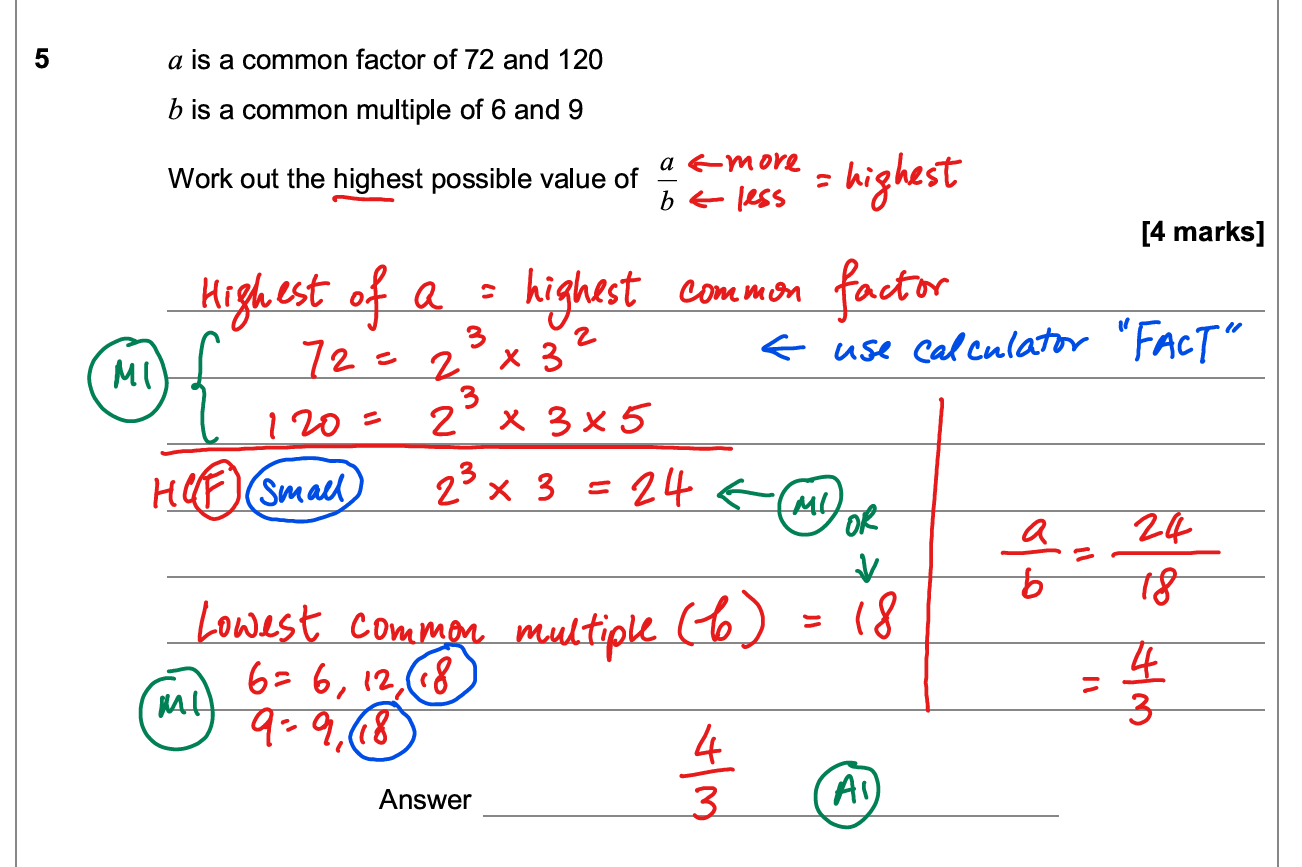 5 a is a common factor of 72 and 120
b is a common multiple of 6 and 9
Work out the highest possible value of a/b ← more ← less = highest
[4 marks]
Highest of a = highest common factor
M1 { 72 = 2³ × 3² ← use calculator "FACT"
120 = 2³ × 3 × 5
HCF small 2³ × 3 = 24 ← M1 OR ↓
a/b = 24/18
Lowest common multiple (b) = 18
= 4/3
M1 6 = 6, 12, 18
9 = 9, 18
Answer 4/3 A1